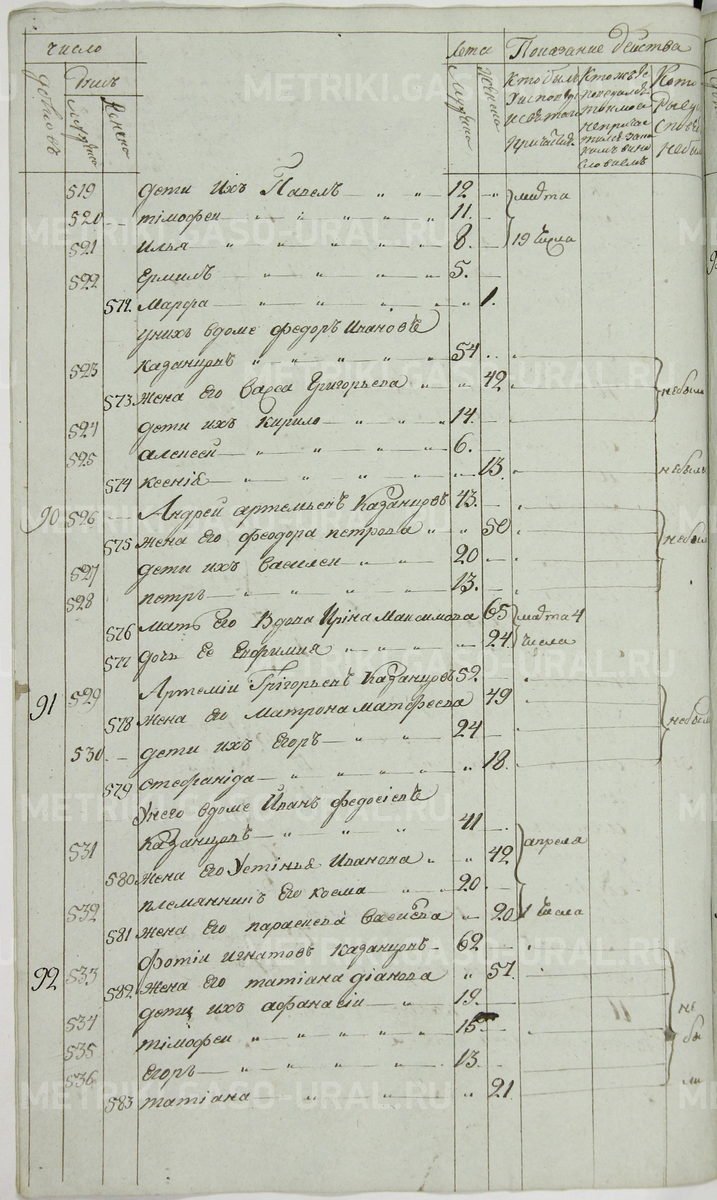 число Лета Показание действа
дворовъ Душъ Мужеска Женска Мужеска Женска Кто былъ у исповеди и святаго причастия Которые у исповеди не были
519 дети ихъ Павелъ 12 марта
520 тимофеи 11.
521 илья 8. 19 числа
522 Ермилъ 5.
572. Марфа 1.
унихъ вдоме федоръ Ивановъ
523 казанцовъ 54
573 жена Его Васса Григорьева 42 небыли
524 дети ихъ Кирило 14.
525 алексеи 6.
574 ксения 13. небылъ
90 526 Андреи артемьевъ Казанцовъ 43.
575 жена Его феодора петрова 50 небыли
527 дети ихъ Василеи 20
528 петръ 13.
576 мать Его вдова Ирина Максимова 65 марта 4
577 дочь Ее Евфимия 24. числа
91 529 Артемии Григорьевъ Казанцовъ 52.
578 жена Его Матрона матфеева 49 небыли
530 дети ихъ Егоръ 24
579 стефанида 18.
Унего вдоме Иванъ федосіевъ
531 Казанцовъ 41
580 жена Его Устинья Иванова 42 апреля
532 племянникъ Его косма 20
581 жена Его параскева Васильева 20 1 числа
92 533 фотіи игнатовъ Казанцовъ 62
582 жена Его татіана діанова 57.
534 дети ихъ афанасіи 19. не
535 тімофеи 15 бы
536 Егоръ 13. ли
583 татіана 21.
METRIKI.GASO-URAL.RU